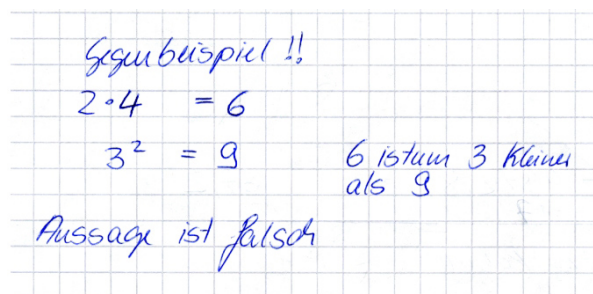 Gegenbeispiel !!
2·4 = 6
3² = 9
6 ist um 3 kleiner
als 9
Aussage ist falsch